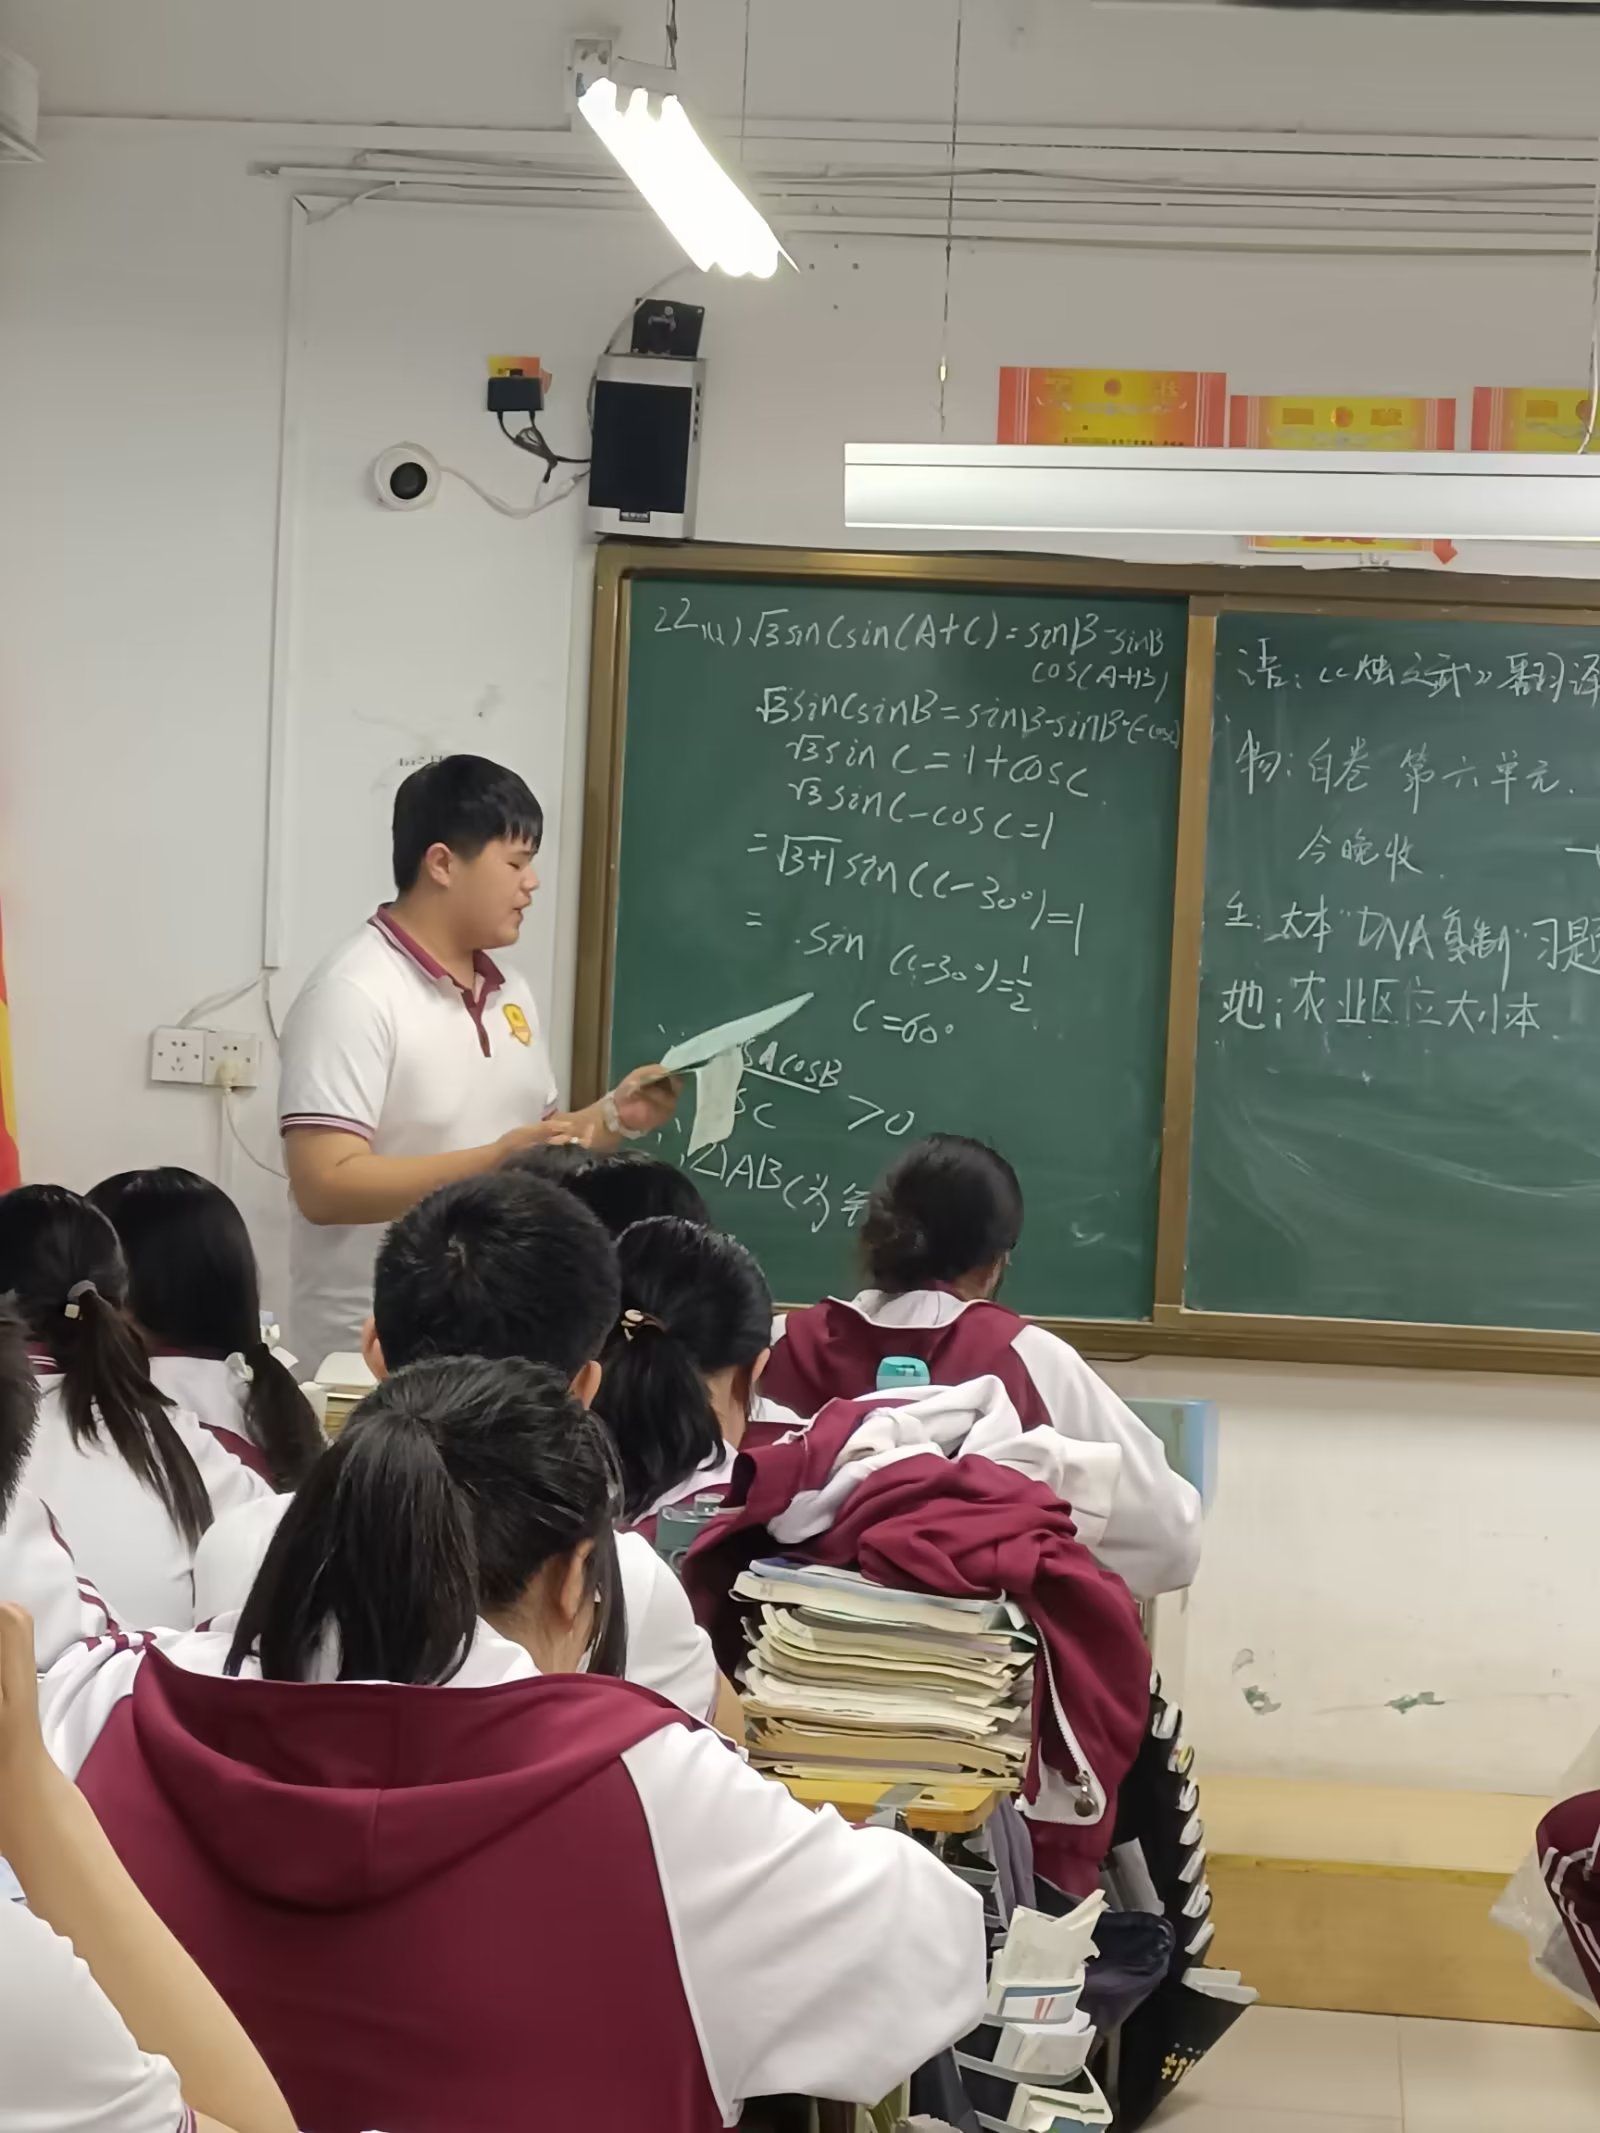 22.(1) √3sinCsin(A+C)=sinB-sinB
cos(A+B)
√3sinCsinB=sinB-sinB·(-cosC)
√3sinC=1+cosC
√3sinC-cosC=1
=√3+1 sin(C-30°)=1
= sin(C-30°)=1/2
C=60°
cosB
>0
△ABC为
语:《烛之武》翻译
物:白卷 第六单元.
今晚收.
生:大本"DNA复制"习题
地:农业区位大小本